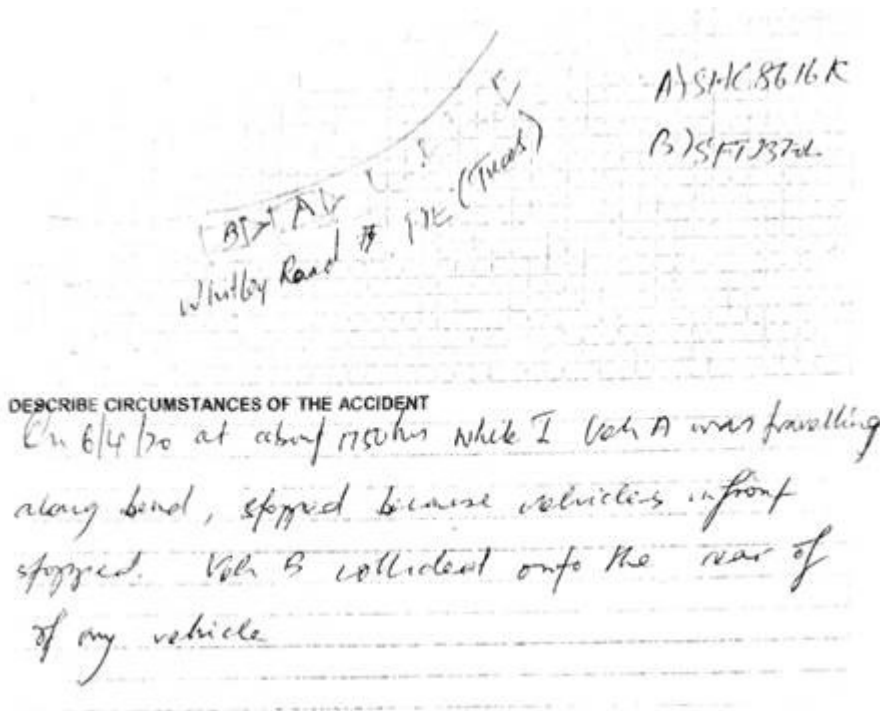 A) SHC8616K
B)
B A
Whitley Road PIE (Tuas)
DESCRIBE CIRCUMSTANCES OF THE ACCIDENT
On 6/4/20 at about 1750hrs while I Veh A was travelling
along bend, stopped because vehicles infront
stopped. Veh B collided onto the rear of
of my vehicle